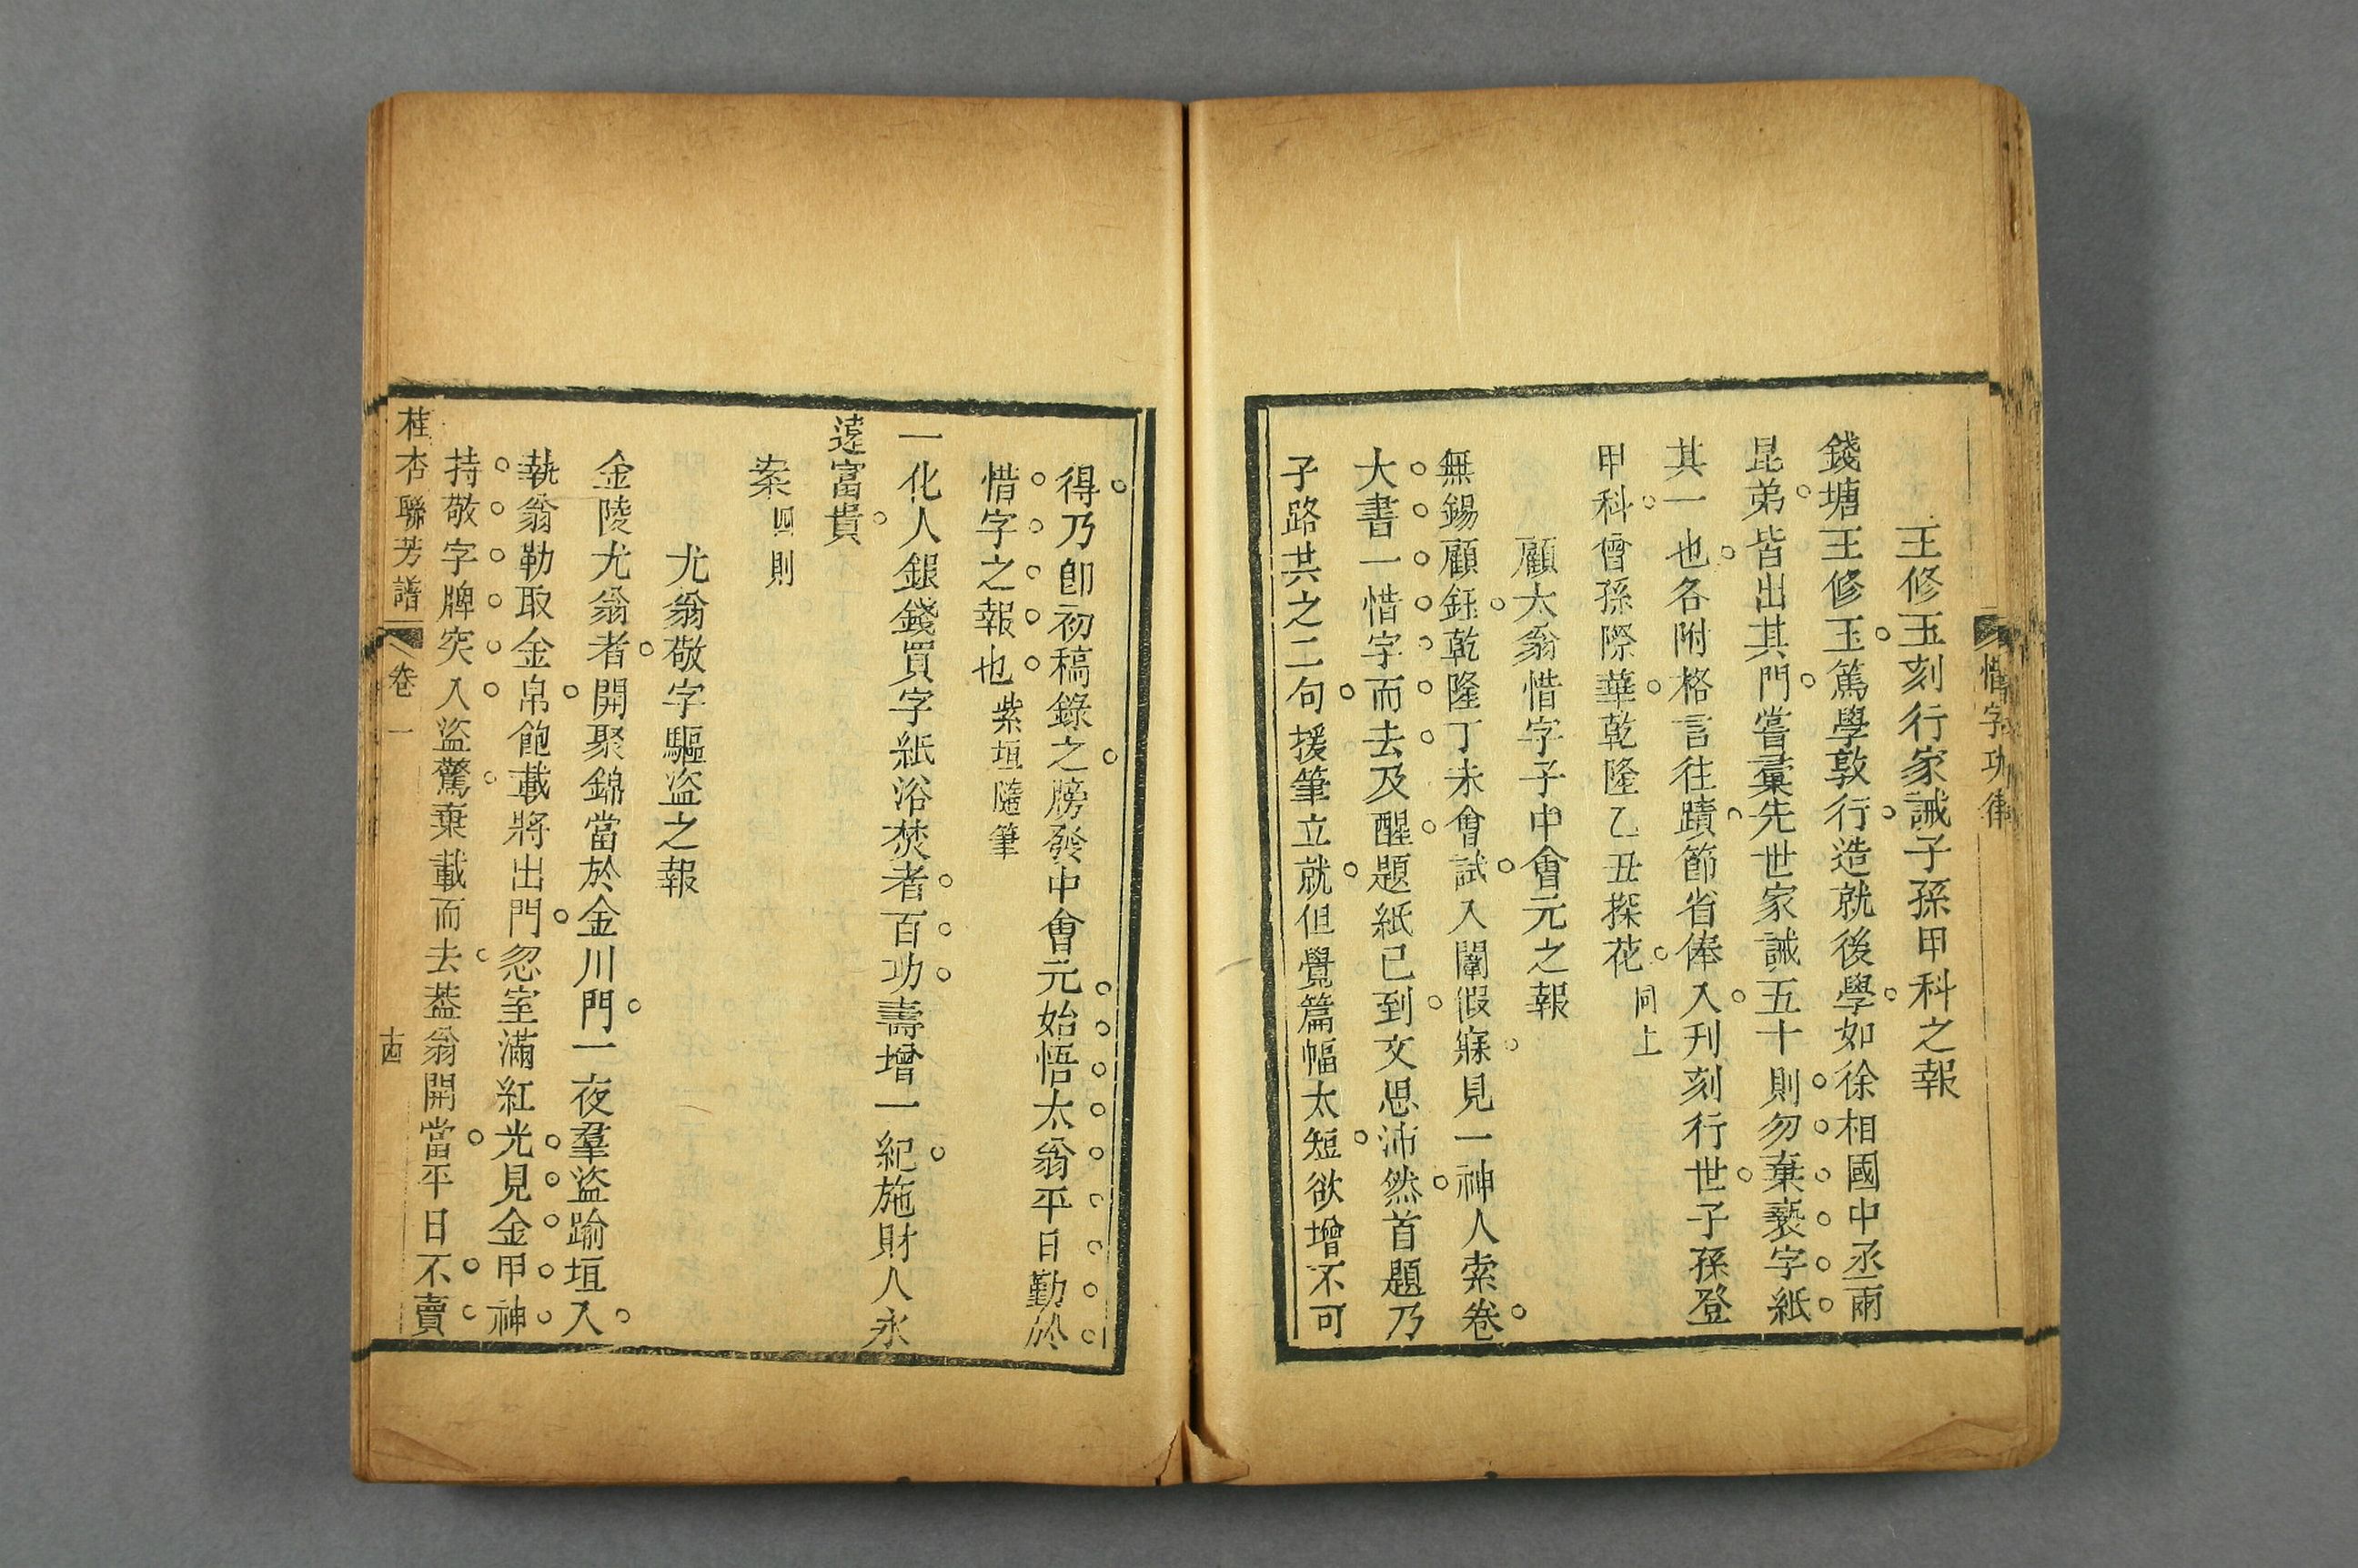 惜字功律
王修玉刻行家誡子孫甲科之報
錢塘王修玉篤學敦行造就後學如徐相國中丞兩
昆弟皆出其門嘗彚先世家誡五十則勿棄褻字紙
其一也各附格言往蹟節省俸入刊刻行世子孫登
甲科曾孫際華乾隆乙丑探花同上
顧太翁惜字子中會元之報
無錫顧鈺乾隆丁未會試入闈假寐見一神人索卷
大書一惜字而去及醒題紙已到文思沛然首題乃
子路共之二句援筆立就但覺篇幅太短欲增不可
得乃卽初稿錄之牓發中會元始悟太翁平日勤於
惜字之報也紫垣隨筆
一化人銀錢買字紙浴焚者百功壽增一紀施財人永
遠富貴
案四則
尤翁敬字驅盜之報
金陵尤翁者開聚錦當於金川門一夜羣盜踰垣入
執翁勒取金帛飽載將出門忽室滿紅光見金甲神
持敬字牌突入盜驚棄載而去葢翁開當平日不賣
桂杏聯芳譜 卷一 十四